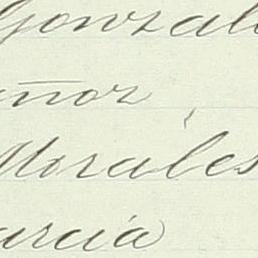 Gonzal
uñoz
Morales
arcia